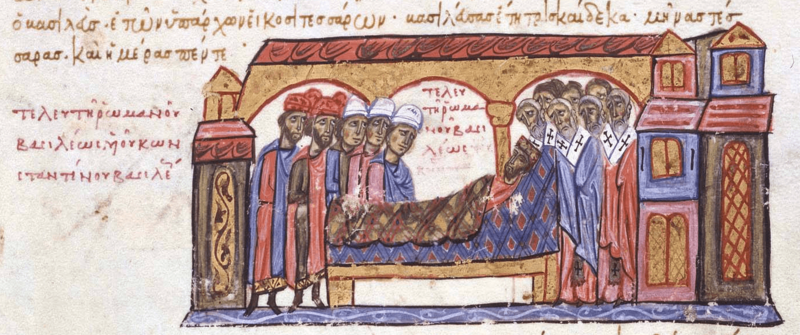 ὁ κασιλάσ· ἐτῶν ὑπάρχων εἰκοσιτεσσάρων· κασιλάσασ ἔτη τρισκαίδεκα· μῆνασ τέσ
σαρασ· καὶ ἡμέρασ πέντε
τελευτὴ ῥωμανοῦ
βασιλέωσ υἱοῦ κων
σταντίνου βασιλέ
τελευ
τὴ ῥωμα
νοῦ βασι
λέωσ